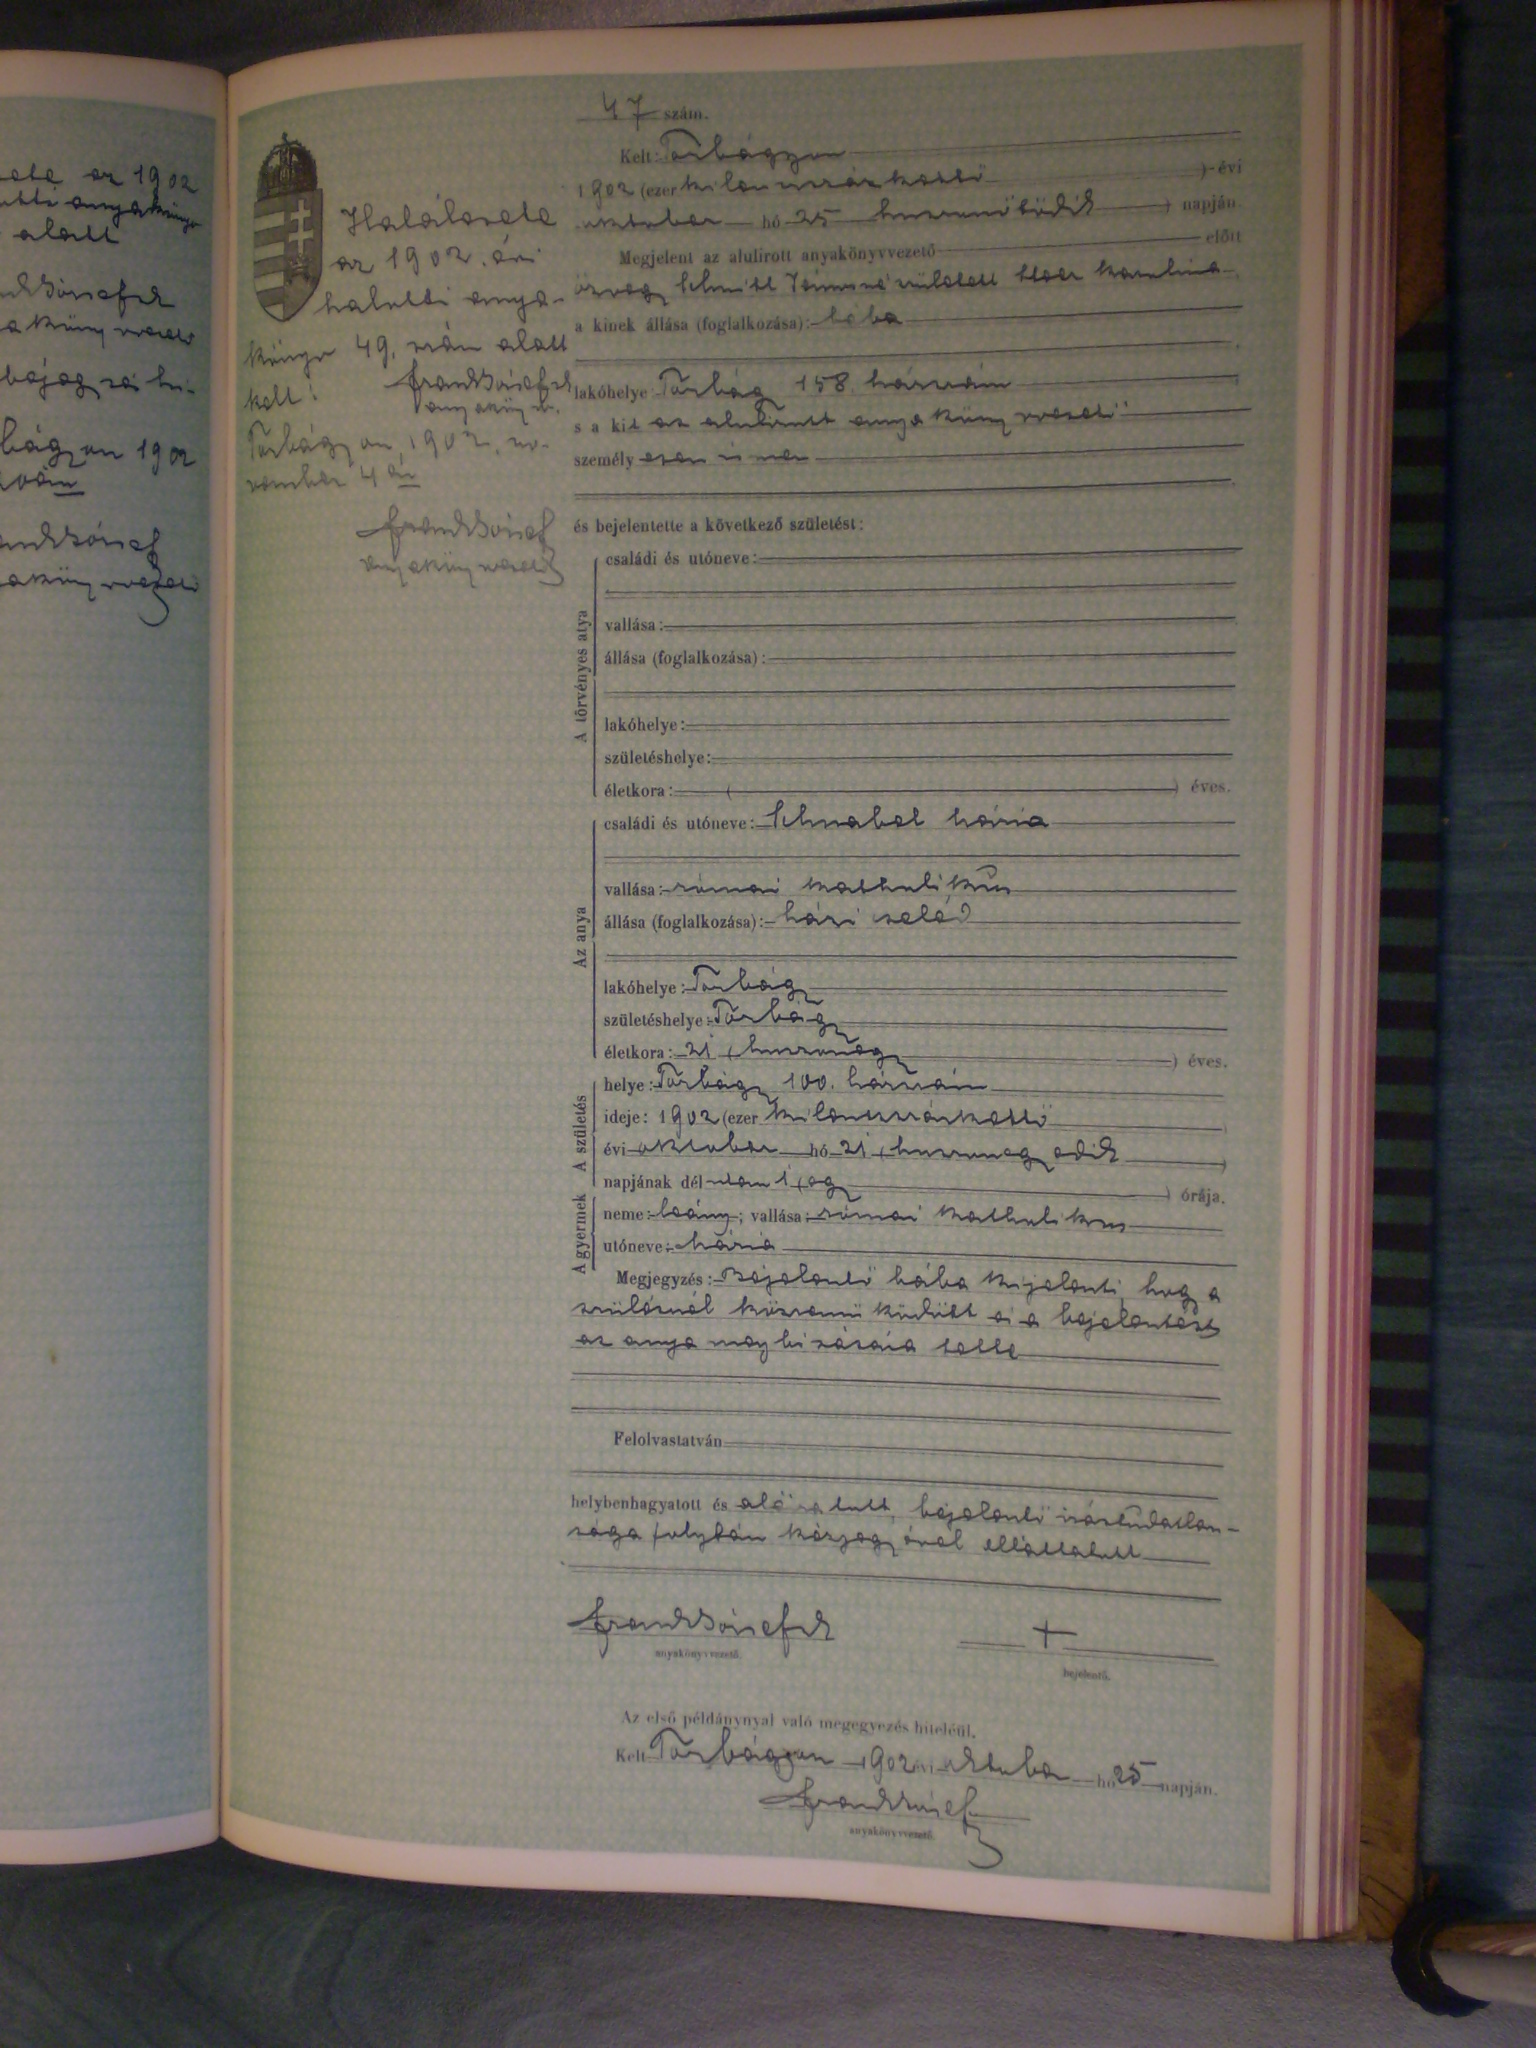 az 1902
alatt
bágyon 1902
Halálesete
az 1902. évi
halotti anya-
könyv 49. szám alatt
kelt!
anyakönyv.
Torbágyon, 1902. no-
vember 4 én
anyakönyvvezető
47 szám.
Kelt: Torbágyon
1902 (ezer kilenczszázkettő ) évi
október hó 25 huszonötödik ) napján
Megjelent az alulirott anyakönyvvezető előtt
özvegy Schmitt Jánosné született Karolina
a kinek állása (foglalkozása): bába
lakóhelye Torbágy 158. házszám
s a kit az alulírott anyakönyvvezető
személy esen ismer
és bejelentette a következő születést:
A törvényes atya
családi és utóneve:
vallása:
állása (foglalkozása):
lakóhelye:
születéshelye:
életkora: ( ) éves.
Az anya
családi és utóneve: Schnabel Mária
vallása: római katholikus
állása (foglalkozása): házi cseléd
lakóhelye: Torbágy
születéshelye: Torbágy
életkora: 21 (huszonegy ) éves.
A születés
helye: Torbágy 100. házszám
ideje: 1902 (ezer kilenczszázkettő )
évi október hó 21 (huszonegyedik )
napjának dél utáni 1 (egy ) órája.
A gyermek
neme: leány; vallása: római katholikus
utóneve: Mária
Megjegyzés: Bejelentő bába kijelenti, hogy a
szülésnél közreműködött és a bejelentést
az anya megbizásából tette
Felolvastatván
helybenhagyatott és aláiratott, bejelentő irástudatlan-
sága folytán kézjegyével elláttatott
+
anyakönyvvezető.
bejelentő.
Az első példánynyal való megegyezés hiteléül.
Kelt Torbágyon 1902 évi október hó 25 napján.
anyakönyvvezető.